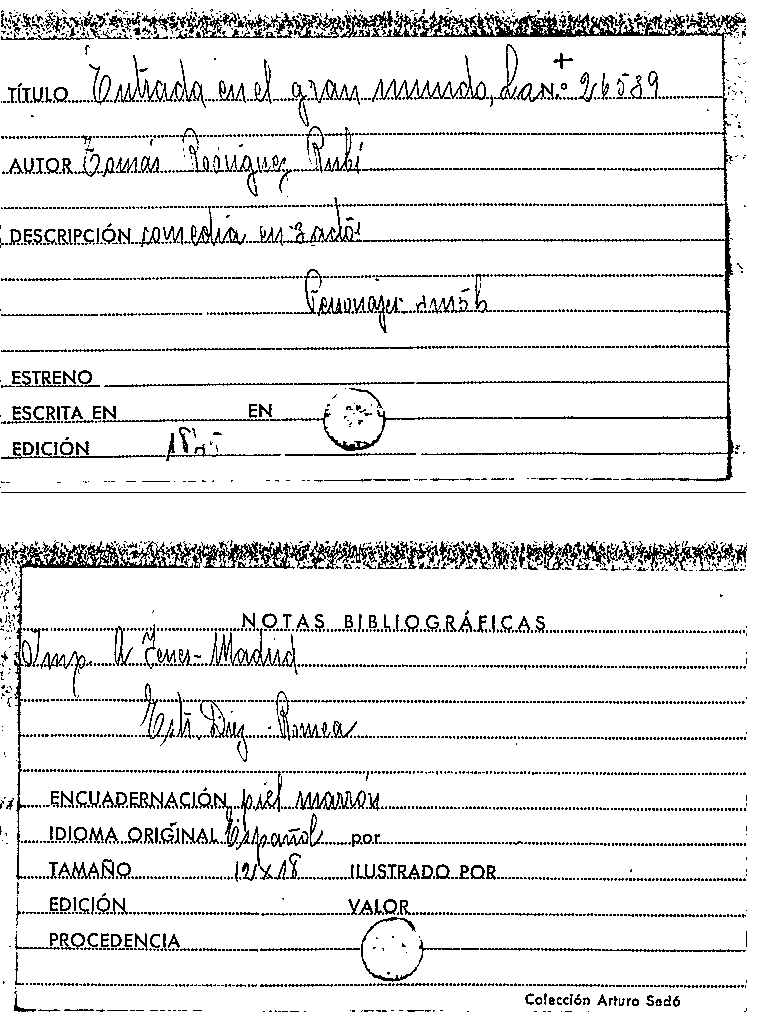 TÍTULO Entrada en el gran mundo, La N.º + 26589
AUTOR Tomás Rodríguez Rubí
DESCRIPCIÓN comedia en 3 actos
Personajes 5h
ESTRENO
ESCRITA EN EN
EDICIÓN
NOTAS BIBLIOGRÁFICAS
Imp. A Yenes - Madrid
Estr. Diez - Romea
ENCUADERNACIÓN piel marrón
IDIOMA ORIGINAL Español por
TAMAÑO 12 x 18 ILUSTRADO POR
EDICIÓN VALOR
PROCEDENCIA
Colección Arturo Sedó